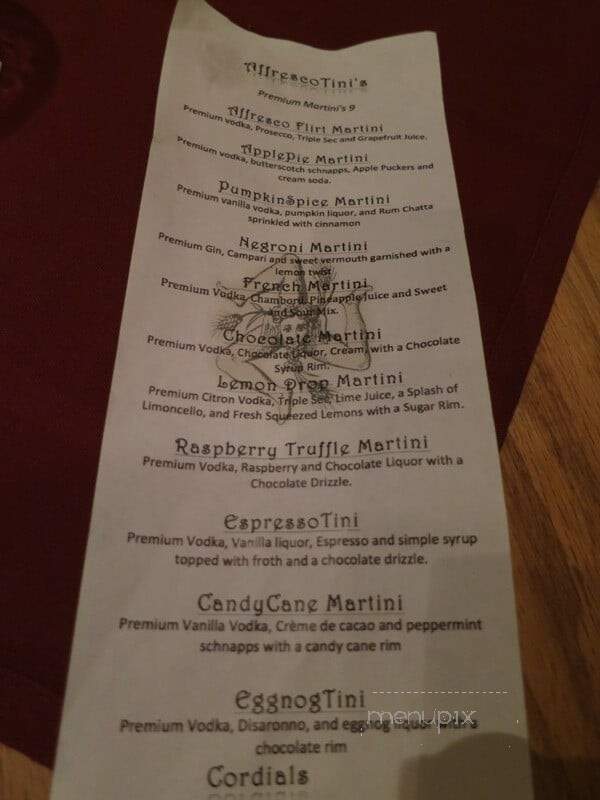 AffrescoTini's
Premium Martini's 9
Affresco Flirt Martini
Premium vodka, Prosecco, Triple Sec and Grapefruit Juice.
ApplePie Martini
Premium vodka, butterscotch schnapps, Apple Puckers and
cream soda.
PumpkinSpice Martini
Premium vanilla vodka, pumpkin liquor, and Rum Chatta
sprinkled with cinnamon
Negroni Martini
Premium Gin, Campari and sweet vermouth garnished with a
lemon twist
French Martini
Premium Vodka, Chambord, Pineapple Juice and Sweet
and Sour Mix.
Chocolate Martini
Premium Vodka, Chocolate Liquor, Cream, with a Chocolate
Syrup Rim.
Lemon Drop Martini
Premium Citron Vodka, Triple Sec, Lime Juice, a Splash of
Limoncello, and Fresh Squeezed Lemons with a Sugar Rim.
Raspberry Truffle Martini
Premium Vodka, Raspberry and Chocolate Liquor with a
Chocolate Drizzle.
EspressoTini
Premium Vodka, Vanilla liquor, Espresso and simple syrup
topped with froth and a chocolate drizzle.
CandyCane Martini
Premium Vanilla Vodka, Crème de cacao and peppermint
schnapps with a candy cane rim
EggnogTini
menupix
Premium Vodka, Disaronno, and eggnog liquor with a
chocolate rim
Cordials